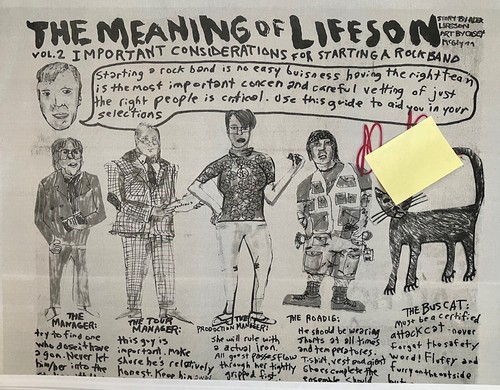 THE MEANING OF LIFESON
STORY BY ALEX
LIFESON
ART BY CASEY
McGlynn
VOL.2 IMPORTANT CONSIDERATIONS FOR STARTING A ROCK BAND
Starting a rock band is no easy buisness having the right team
is the most important concern and careful vetting of just
the right people is critical. Use this guide to aid you in your
selections
THE
MANAGER:
try to find one
who doesn't have
a gun. Never let
him/her into the
THE TOUR
MANAGER:
this guy is
important. Make
shore he's relatively
honest. Keep him
THE
PRODUCTION MANAGER:
She will rule with
a actual iron.
All guest passes flow
through her tightly
gripped fist.
THE ROADIE:
He should be wearing
shorts at all times
and temperatures.
T-shirt, vest and giant
shoes complete the
ensemble. should
THE BUS CAT:
Must be a certified
attack cat - never
forget the safety
word! Fluffy and
furry on the outside